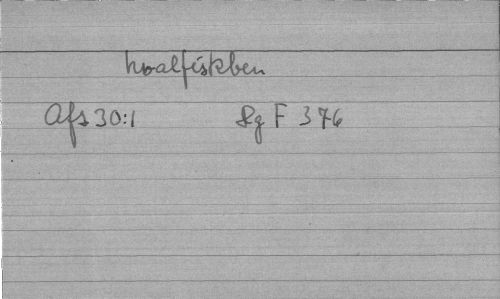 hvalfiskben
Afs 30:1 Sg F 376